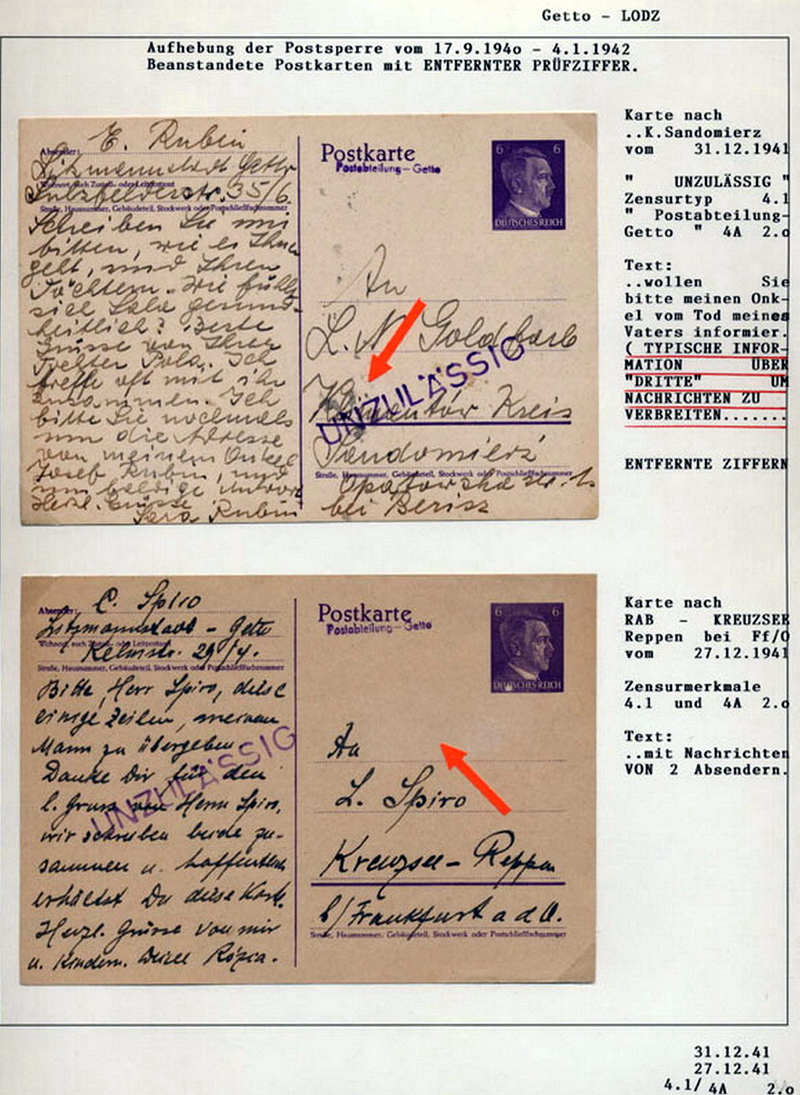 Getto - LODZ
Aufhebung der Postsperre vom 17.9.194o - 4.1.1942
Beanstandete Postkarten mit ENTFERNTER PRÜFZIFFER.
Absender: E. Rubin
Litzmannstadt Getto
Wohnort, auch Zustell- oder Leitpostamt
Sulzfelderstr. 35/6.
Straße, Hausnummer, Gebäudeteil, Stockwerk oder Postschließfachnummer
Schreiben Sie mir
bitten, wie es Ihnen
geht, und Ihren
Töchtern. Wie fühlt
sich Lala gesund-
heitlich? Beste
Grüsse von Ihrer
Tochter Pola. Ich
treffe oft mit ihr
zusammen. Ich
bitte Sie nochmals
um die Adresse
von meinem Onkel
Josef Rubin, und
um baldige Antwort
Herzl. Grüsse
Sara Rubin
Postkarte
Postabteilung-Getto
6 6
DEUTSCHES REICH
An
L. N. Goldfarb
UNZULÄSSIG
Kreis
Sandomierz
Straße, Hausnummer, Gebäudeteil, Stockwerk oder Postschließfachnummer
Opatowska str.
bei
Karte nach
..K.Sandomierz
vom 31.12.1941
" UNZULÄSSIG "
Zensurtyp 4.1
" Postabteilung-
Getto " 4A 2.o
Text:
..wollen Sie
bitte meinen Onk-
el vom Tod meines
Vaters informier.
( TYPISCHE INFOR-
MATION ÜBER
"DRITTE" UM
NACHRICHTEN ZU
VERBREITEN.......
ENTFERNTE ZIFFERN
Absender: C. Spiro
Litzmannstadt - Getto
Wohnort, auch Zustell- oder Leitpostamt
Kelmstr. 29/4.
Straße, Hausnummer, Gebäudeteil, Stockwerk oder Postschließfachnummer
Bitte, Herr Spiro, diese
einige Zeilen, meinem
Mann zu übergeben
Danke Dir für den
l. Gruss von Herrn Spiro,
wir schreiben beide zu-
sammen u. hoffentlich
erhältst Du diese Kart.
Herzl. Grüsse von mir
u. Kindern. Deine Rózia.
UNZULÄSSIG
Postkarte
Postabteilung-Getto
6 6
DEUTSCHES REICH
An
L. Spiro
Kreuzsee - Reppen
b/Frankfurt a d O.
Straße, Hausnummer, Gebäudeteil, Stockwerk oder Postschließfachnummer
Karte nach
RAB - KREUZSEE
Reppen bei Ff/O
vom 27.12.1941
Zensurmerkmale
4.1 und 4A 2.o
Text:
..mit Nachrichten
VON 2 Absendern.
31.12.41
27.12.41
4.1/ 4A 2.o